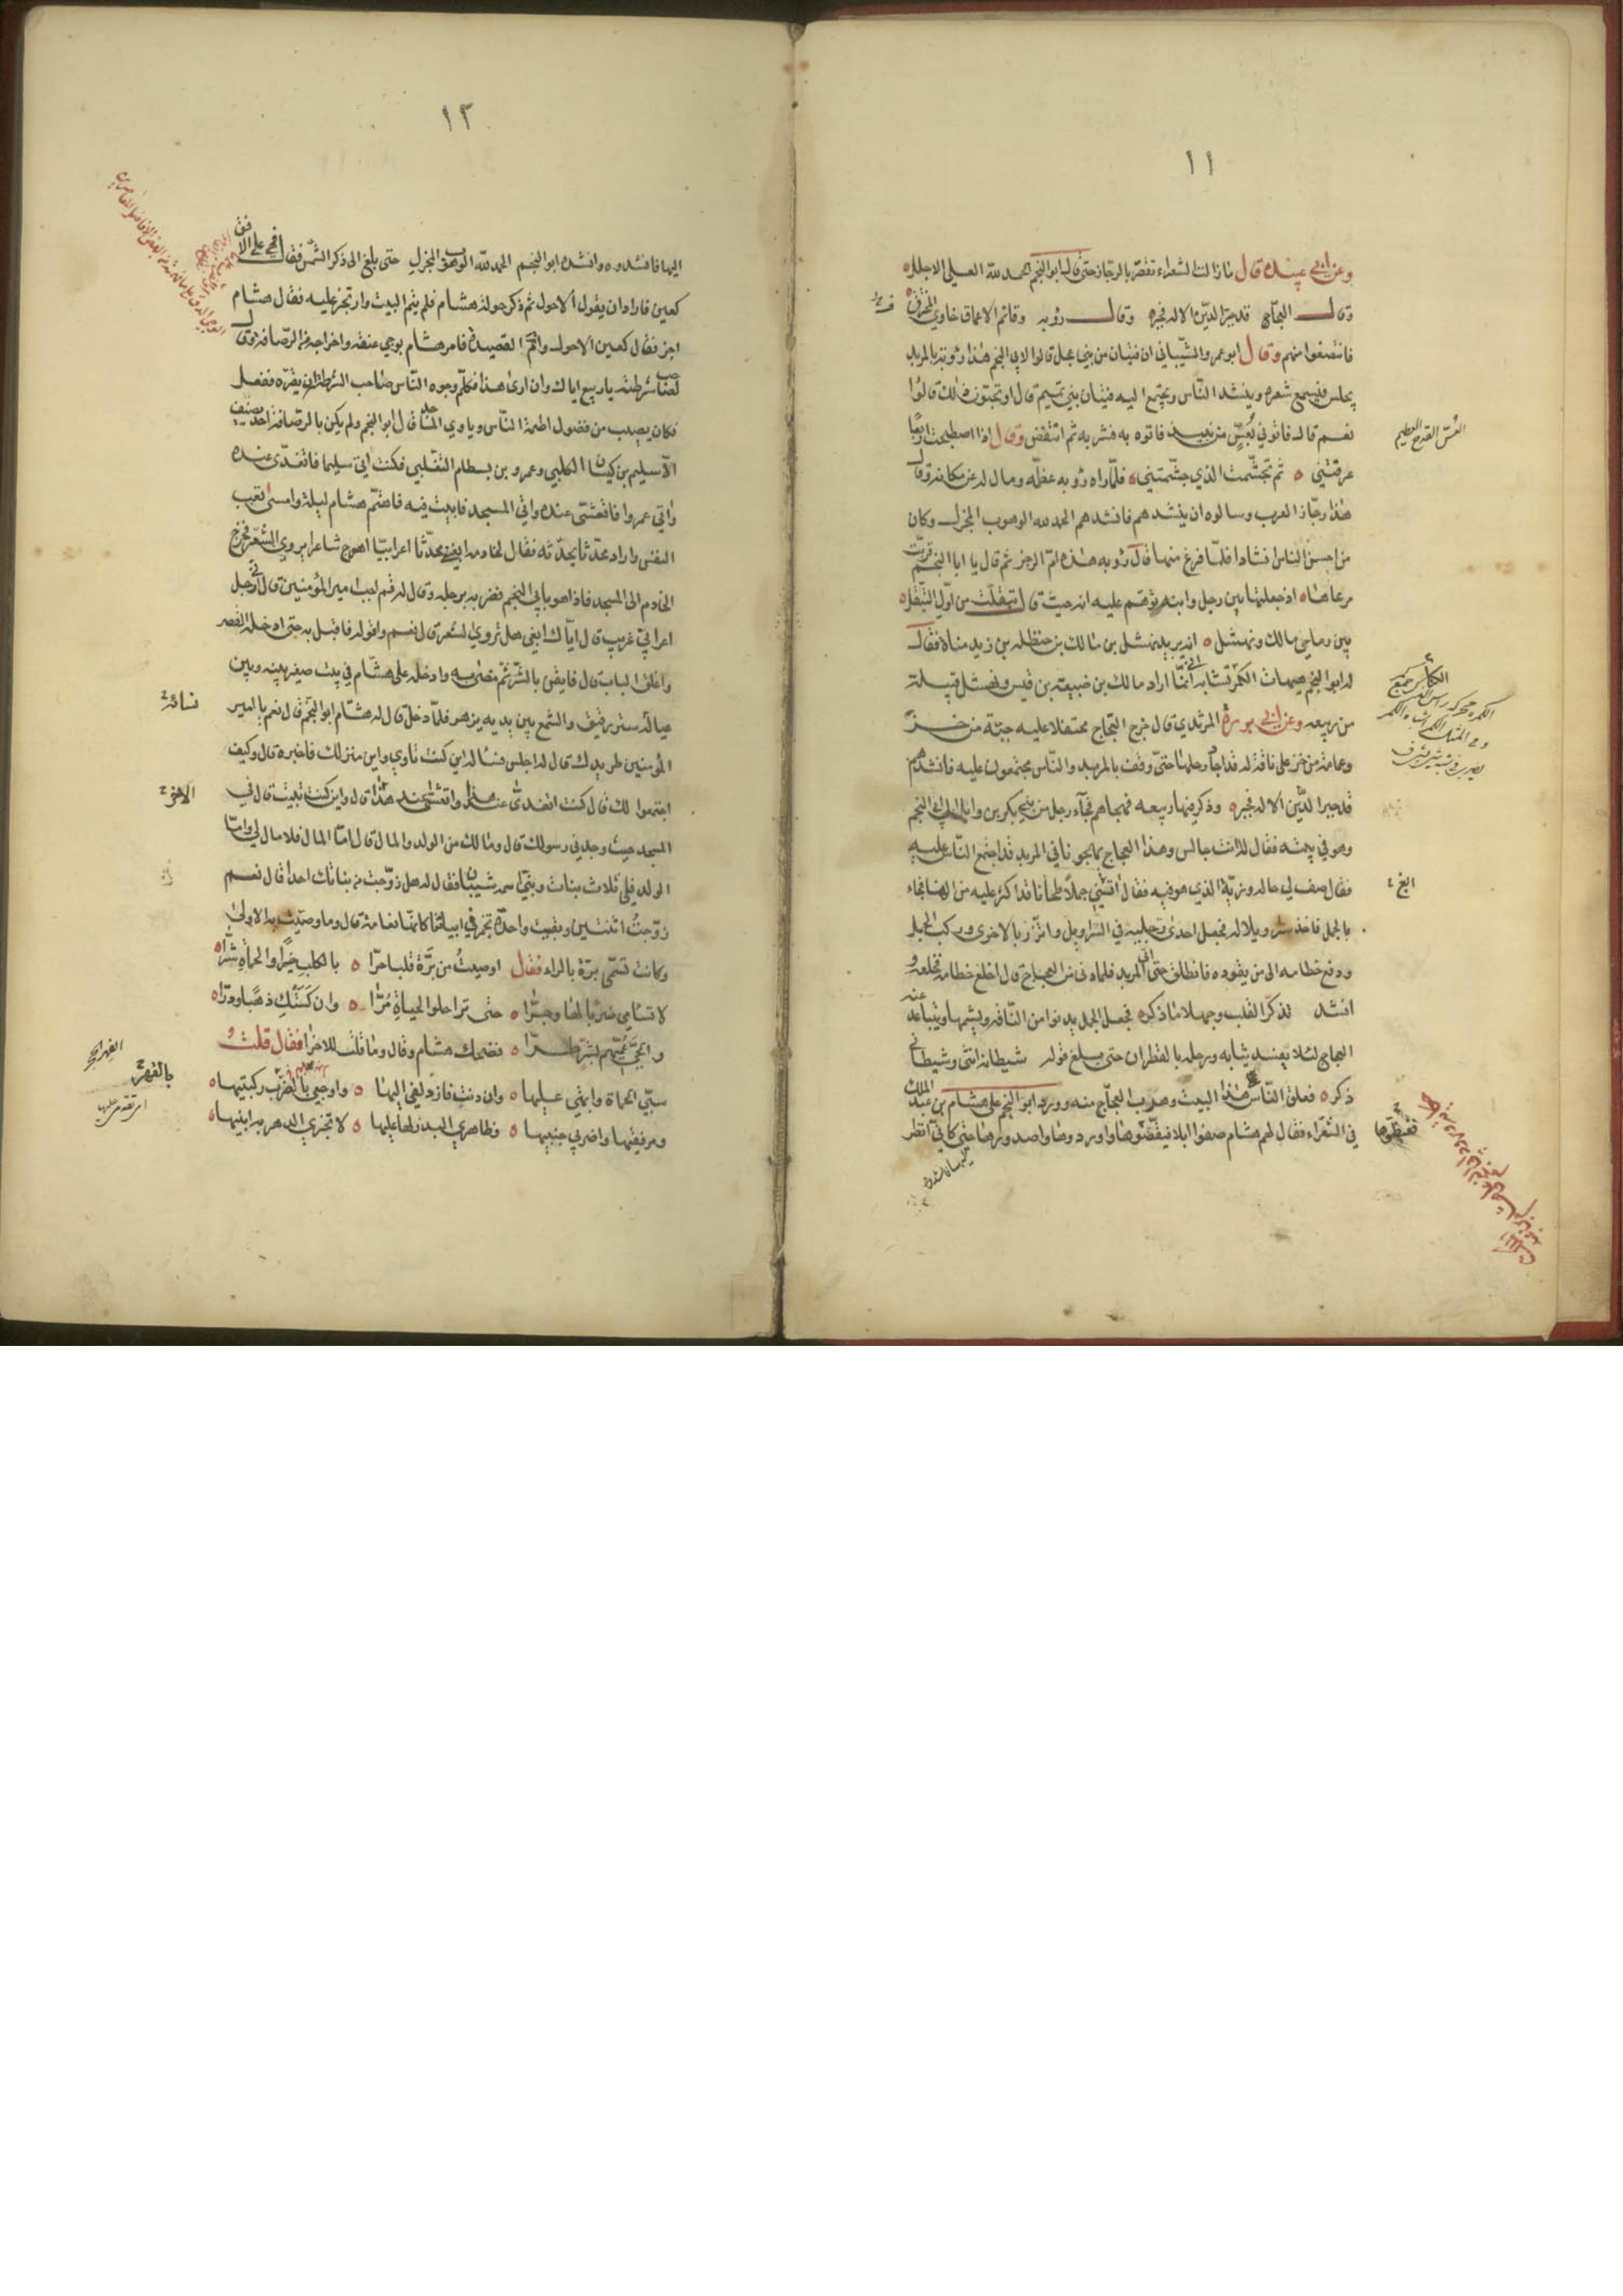 ١١
وعن ابي عبيده قال ما زالت الشعراء تقصر بالرجاز حتى قال ابو النجم الحمد لله العلي الاجلل
وقال العجاج قد جبر الدين الاله فجبر وقال رؤبه وقاتم الاعماق خاوي المخترق
فانتصفوا منهم وقال ابو عمرو الشيباني ان فتيان من بني عجل قالوا لابي النجم هذا رؤبة بالمربد
يجلس فيسمع شعره وينشد الناس ويجتمع اليه فتيان بني تميم قال او تحبون ذلك قالوا
نعم قال فاتوني بعس من نبيذ فاتوه به فشربه ثم انتفض وقال اذا اصطبحت اربعا
العس القدح العظيم
عرفتني ثم تجشمت الذي جشمتني فلما راه رؤبه عظمه وما ل له عن مكانه وقال
هذا رجاز العرب وسالوه ان ينشدهم فانشدهم الحمد لله الوهوب المجزل وكان
من احسن الناس انشادا فلما فرغ منها قال رؤبه هذه ام الرجز ثم قال يا ابا النجم قربت
مرعاها اذ جعلتها بين رجل وابنه توهم عليه انه حيث قال تبقلت من اول التبقل
بين رماحي مالك ونهشل انه يريد نهشل بن مالك بن حنظله بن زيد مناة فقال
له ابو النجم هيهات الكمر تشابه اني انما اراد مالك بن ضبيعه بن قيس ونهشل قبيلة
من ربيعه وعن ابي برزة المرثدي قال خرج العجاج محتفلا عليه جبة من خز
وعمامة من خز على ناقة له قد اجاد رحلها حتى وقف بالمربد والناس مجتمعون عليه فانشدهم
قد جبر الدين الاله فجبر وذكر فيها ربيعه فهجاهم فجاء رجل من بني بكر بن وايل الى ابي النجم
وهو في بيته فقال له انت جالس وهذا العجاج يهجونا في المربد قد اجتمع الناس عليه
فقال صف لي حاله وزيه الذي هو فيه فقال ابغني جملا طحانا قد اكثر عليه من الهناء فجاء
ابغ
بالجمل فاخذ سراويلا له فجعل احدى رجليه في السراويل واتزر بالاخرى وركب الجمل
ودفع خطامه الى من يقوده فانطلق حتى اتى المربد فلما دنى من العجاج قال اخلع خطامه فخلعه و
انشد تذكر القلب وجهلا ما ذكر فجعل الجمل يدنوا من الناقة ويشمها ويتباعد عنه
العجاج لئلا يفسد ثيابه ورحله بالقطران حتى بلغ قوله شيطانه انثى وشيطاني
ذكر فعلق الناس هذا البيت وهرب العجاج منه وورد ابو النجم على هشام بن عبد الملك
في الشعراء فقال لهم هشام صفوا ابلا فقطروها واوردوها واصدروها حتى كاني انظر
١٢
اليها فانشدوه وانشده ابو النجم الحمد لله الوهوب المجزل حتى بلغ الى ذكر الشمس فقال فهي على الافق
كعين فاراد ان يقول الاحول ثم ذكر حولة هشام فلم يتم البيت وارتج عليه فقال هشام
اجز فقال كعين الاحول واتم القصيدة فامر هشام بوجي عنقه واخراجه من الرصافة وقال
لصاحب شرطته يا ربيع اياك وان ارى هذا فكلم وجوه الناس صاحب الشرطة ان يقره ففعل
فكان يصيب من فضول اطعمة الناس وياوي المساجد قال ابو النجم ولم يكن بالرصافة احد يضيف
الا سليم بن كيسان الكلبي وعمرو بن بسطام التغلبي فكنت اتي سليما فاتغدى عنده
واتي عمروا فاتعشى عنده واتي المسجد فابيت فيه فاهتم هشام ليلة وامسى لقيس
النفس واراد محدثا يحدثه فقال لخادمه ابغني محدثا اعرابيا اهوج شاعرا يروي الشعر فخرج
الخادم الى المسجد فاذا هو بابي النجم فضربه برجله وقال له قم اجب امير المؤمنين قال اني رجل
اعرابي غريب قال اياك ابغي هل تروي الشعر قال نعم واقوله فاقبل به حتى ادخله القصر
واغلق الباب قال فايقن بالشر ثم مضى به وادخله على هشام في بيت صغير بينه وبين
نسائه
عياله ستر رقيق والشمع بين يديه يزهر فلما دخل قال له هشام ابو النجم قال نعم يا امير
المؤمنين طريدك قال له اجلس فساله اين كنت تاوي واين منزلك فاخبره قال وكيف
اجتمعوا لك قال كنت اتغدى عند هذا واتعشى عند هذا قال واين كنت تبيت قال في
الاخر
المسجد حيث وجدني رسولك قال وما لك من الولد والمال قال اما المال فلا مال لي واما
الولد فلي ثلاث بنات وبني اسمه شيبان فقال له هل زوجت من بناتك احدا قال نعم
زوجت اثنتين وبقيت واحدة تجمز في ابياتنا كانها نعامة قال وما وصيت به الاولى
وكانت تسمى برة بالراء فقال اوصيت من برة قلبا حرا بالكلب خيرا والحماة شرا
لا تسامي ضربا لها وجرا حتى ترى حلو الحياة مرا وان كستك ذهبا ودرا
والحي عميهم بشر طرا فضحك هشام وقال وما قلت للاخرى فقال قلت
سبي الحماة وابهتي عليها وان دنت فازدلفي اليها واوجعي بالضرب ركبتيها
بالفهر
الفهر الحجر
ومرفقيها واضربي جنبيها وظاهري اليد لها عليها لا تخبري الدهر به ابنتيها